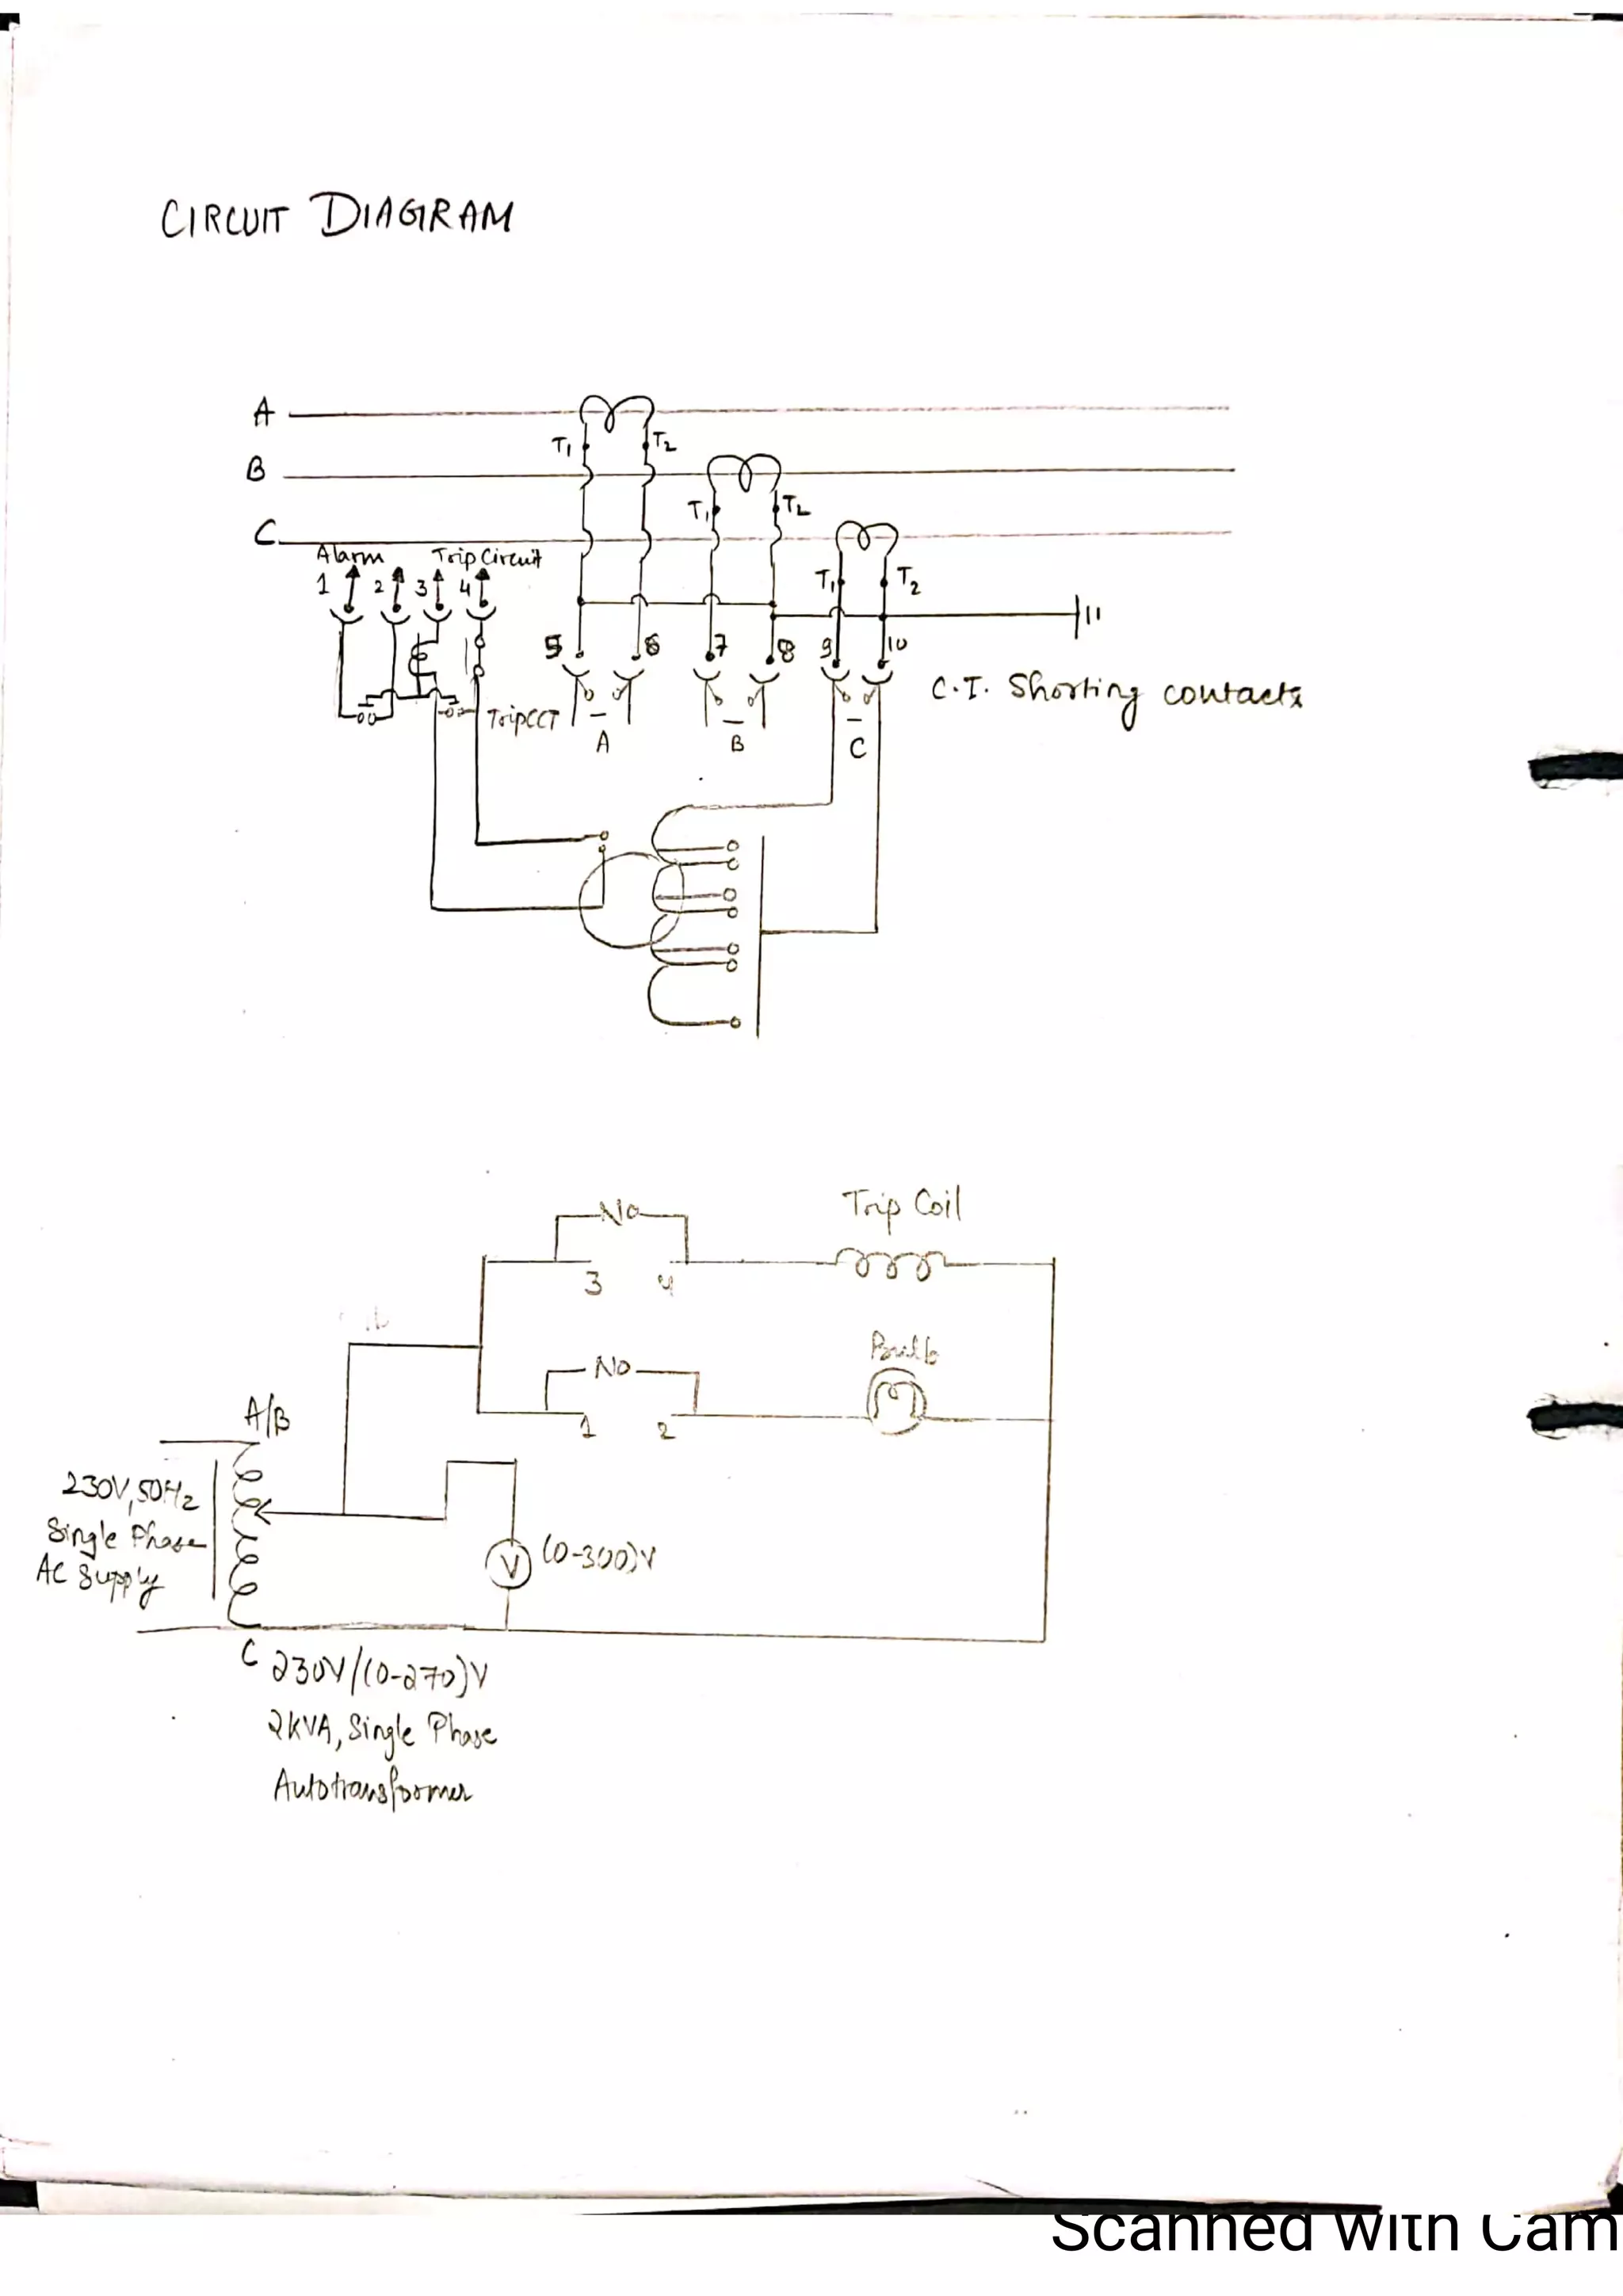 CIRCUIT DIAGRAM
A
T1 T2
B
T1 T2
C
Alarm Trip Circuit
1 2 3 4
T1 T2
5 6 7 8 9 10
C.T. Shorting contacts
Trip CCT
A B C
Trip Coil
No
3 4
Bulb
No
1 2
A/B
230V, 50Hz
Single Phase
AC Supply
V (0-300)V
C 230V/(0-270)V
2KVA, Single Phase
Autotransformer
Scanned with Cam